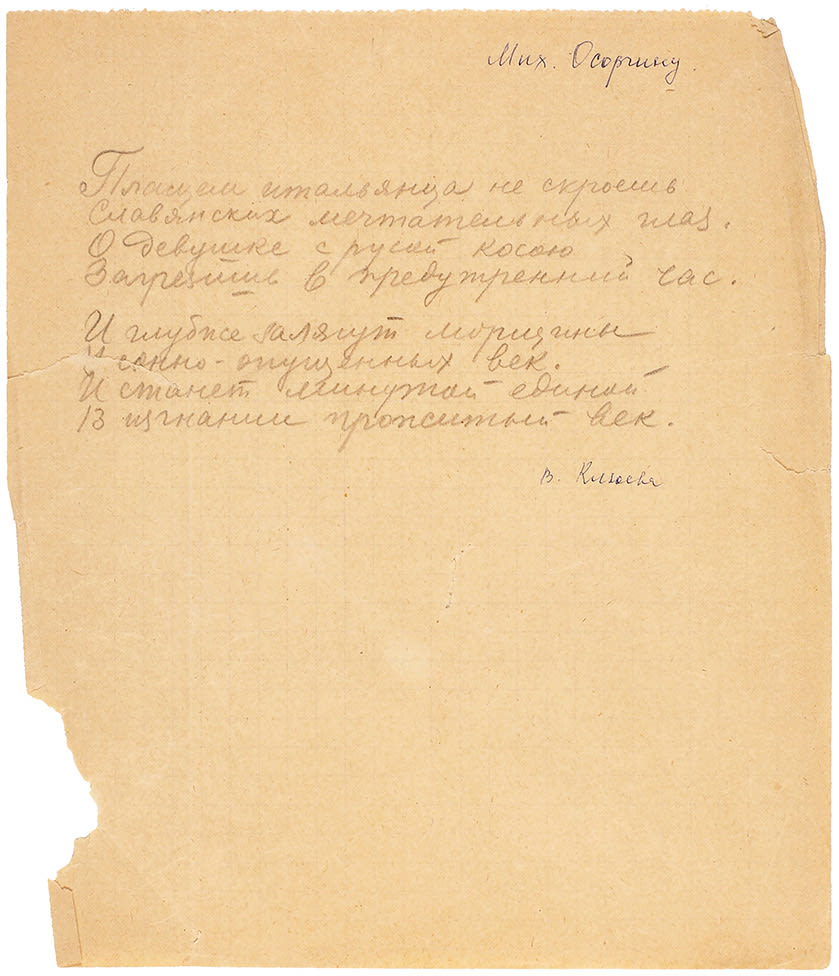 Мих. Осоргину.
Плащем итальянца не скроешь
Славянских мечтательных глаз.
О девушке с русой косою
Загрезишь в предутренний час.
И глубже залягут морщины
У сонно-опущенных век.
И станет минутой единой
В изгнании прожитый век.
В. Клюева